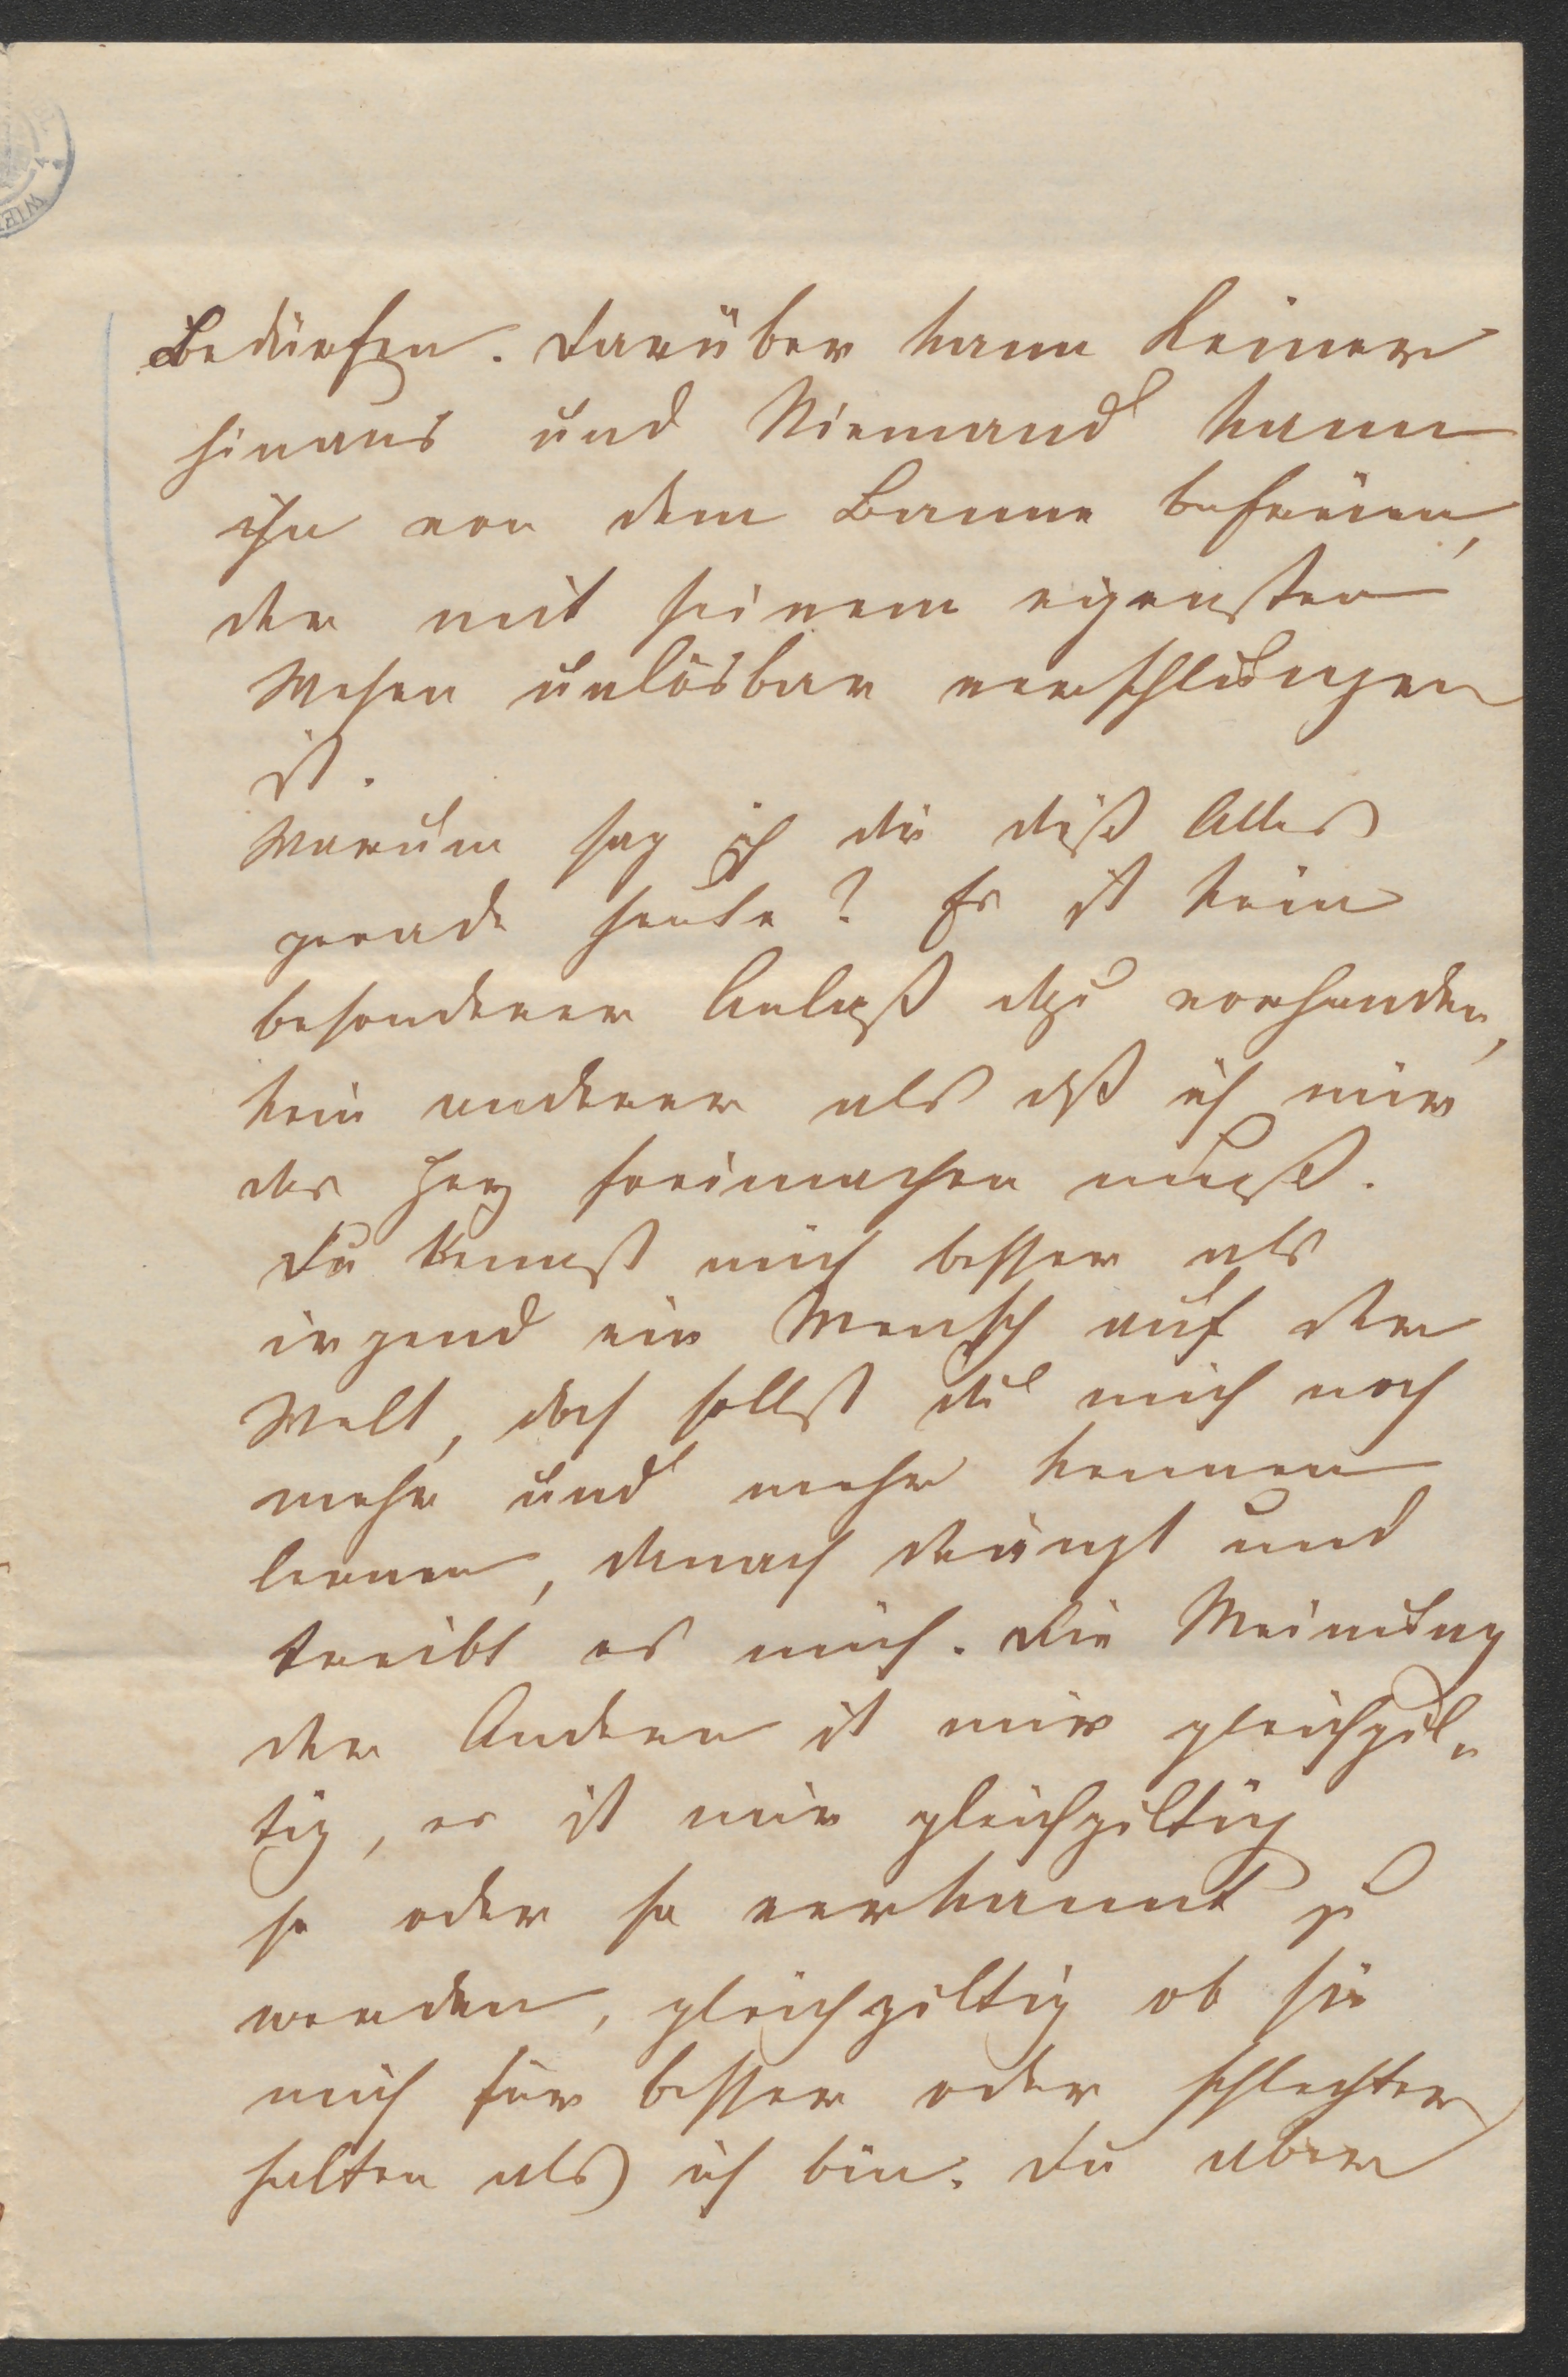 Bedürfen. Darüber kann Keiner
hinaus und Niemand kann
ihn von dem Banne befreien,
der mit seinem eigensten
Wesen unlösbar verschlungen
ist.
Warum sag ich dir diß Alles
gerade heute? Es ist kein
besonderer Anlaß dazu vorhanden,
kein anderer als daß ich mir
das Herz freimachen muß.
Du kennst mich besser als
irgend ein Mensch auf der
Welt, doch sollst du mich noch
mehr und mehr kennen
lernen, danach drängt und
treibt es mich. Die Meinung
der Andern ist mir gleichgil„
tig, es ist mir gleichgiltig
so oder so verkannt zu
werden, gleichgiltig ob sie
mich für besser oder schlechter
halten als ich bin. Du aber